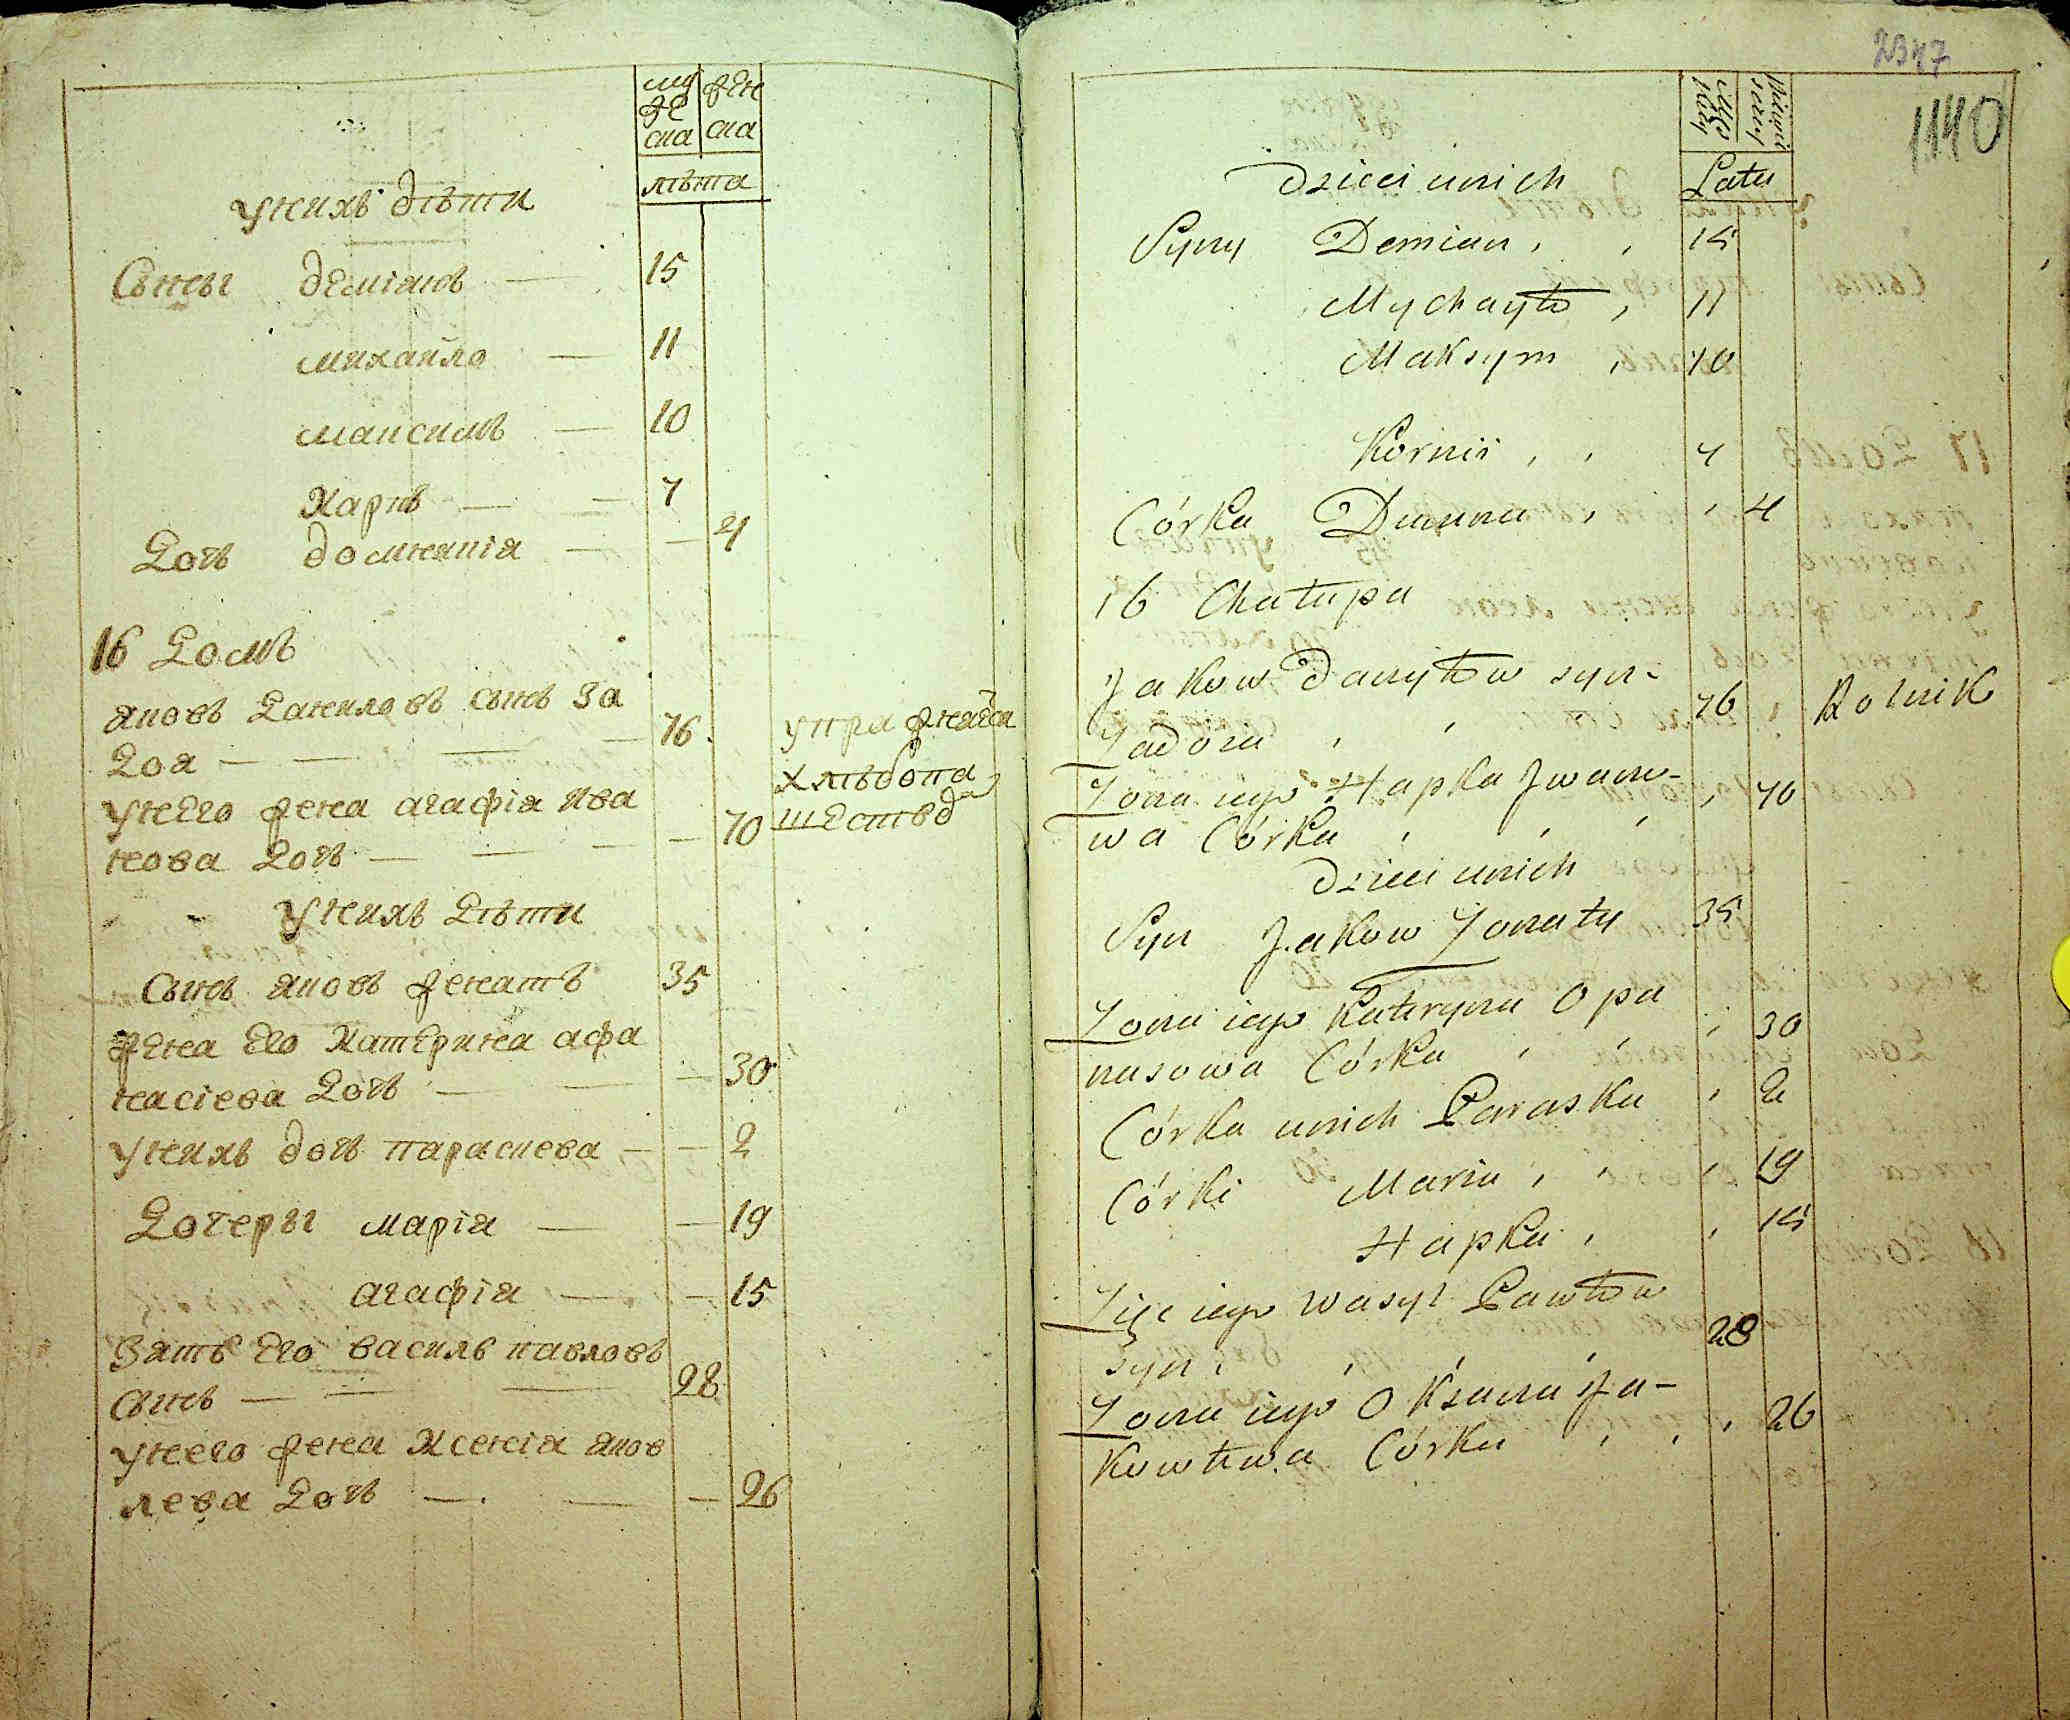 муже
ска
жен
ска
лѣта
У нихъ дѣти
Сыны деміянъ — 15
михайло — 11
максимъ — 10
Карпъ — 7
Дочь домникія — — 4
16 Домъ
яковъ Даниловъ сынъ За
доя — — — 76. упражняѣтся
хлѣбопа
У него жена агафія Ива
нова Дочь — — — 70 шествд
У нихъ Дѣти
Сынъ яковъ женатъ 35
жена Его Катерина афа
насіева Дочь — — — 30
У нихъ дочь параскева — — 2
Дочеры марія — — 19
агафія — — 15
Зять Его василь павловъ
сынъ — — — 28
У него жена Ксенія яков
лева Дочь — — — 26
2347
1140
Męs
kiey
Latu
Dzieci u nich
Syny Demian , , 15
Mychayło , 11
Maksym , 10
Kornii , , 7
Córka Dumna , , 4
16 Chałupa
Jakow Daniłow syn-
Zadoia , , 76 , Rolnik
Zona iego Hapka Jwano-
wa Córka , , , , 70
Dzieci u nich
Syn Jakow Zonaty 35
Zona iego Kateryna Opa
nasowa Córka , , , 30
Córka u nich Paraska , 2
Córki Maria , , , 19
Hapka , , 15
Zięć iego Wasyl Pawłow
syn , , , 28
Zona iego Oksana Ja-
kowlewa Córka , , , 26